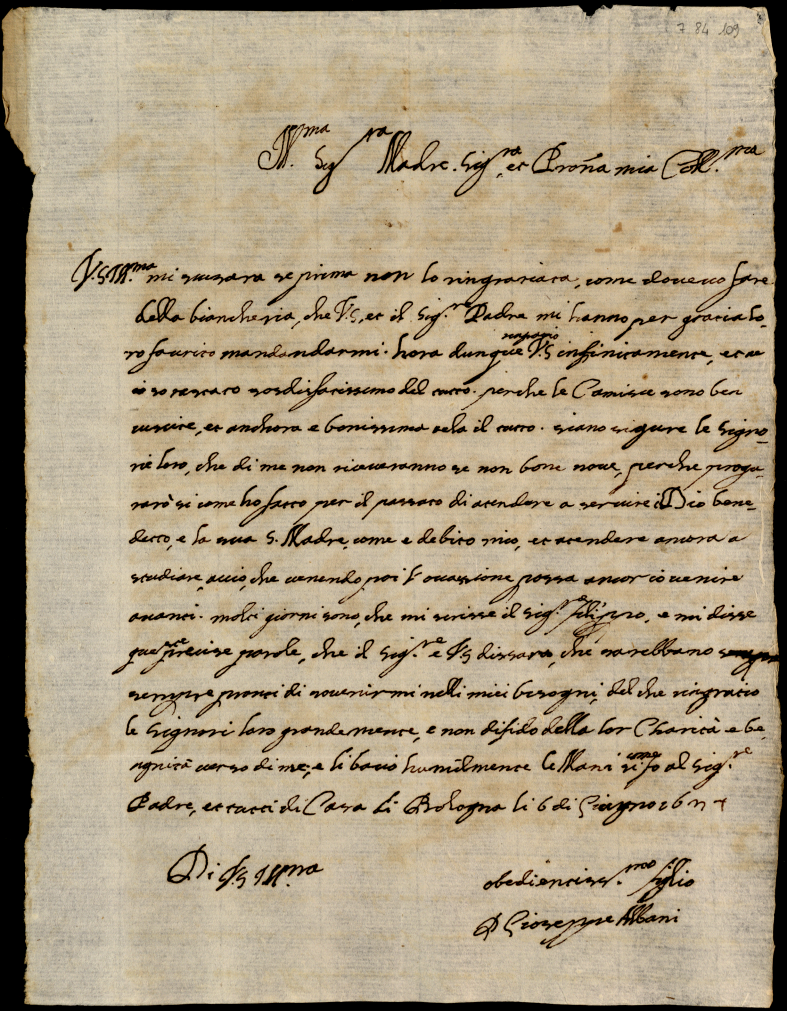 7 84 109
Ill.ma Sig.ra Madre. Sig.ra et Proña mia Coll.ma
V.S. Ill.ma mi scusara se prima non lo ringratiata, come dovevo fare
della biancheria, che V.S. et il Sig.re Padre mi hanno per gratia lo-
ro favrito mandandarmi. hora dunque ringratio V.S. infinitamente, et ve
so restato sodisfatissimo del tutto. perche le Camisce sono ben
cuscite, et anchora e bonissima tela il tutto. siano sigure le Signo-
rie loro, che di me non riceveranno se non bone nove, perche proga-
rarò si come ho fatto per il passato di atendere a servire il Dio bene-
detto, e la sua S. Madre, come e debito mio, et atendere ancora a
studiare, acciò, che venendo poi l' occassione possa ancor io venire
avanti. molti giorni sono, che mi scrisse il sig.re filippo, e mi disse
queste precise parole, che il sig.re e V.S. dissara, che sarebbano
sempre pronti di sovenirmi nelli miei besogni, del che ringratio
le Signori loro grandemente, e non difido della lor Charità e be-
gnità verso di me, e li bacio humilmente le Mani come fo al sig.re
Padre, et tutti di Casa di Bologna li 6 di Giugno 16
Di V.S. Ill.ma
obedientiss.mo figlio
D Gioseppe Albani